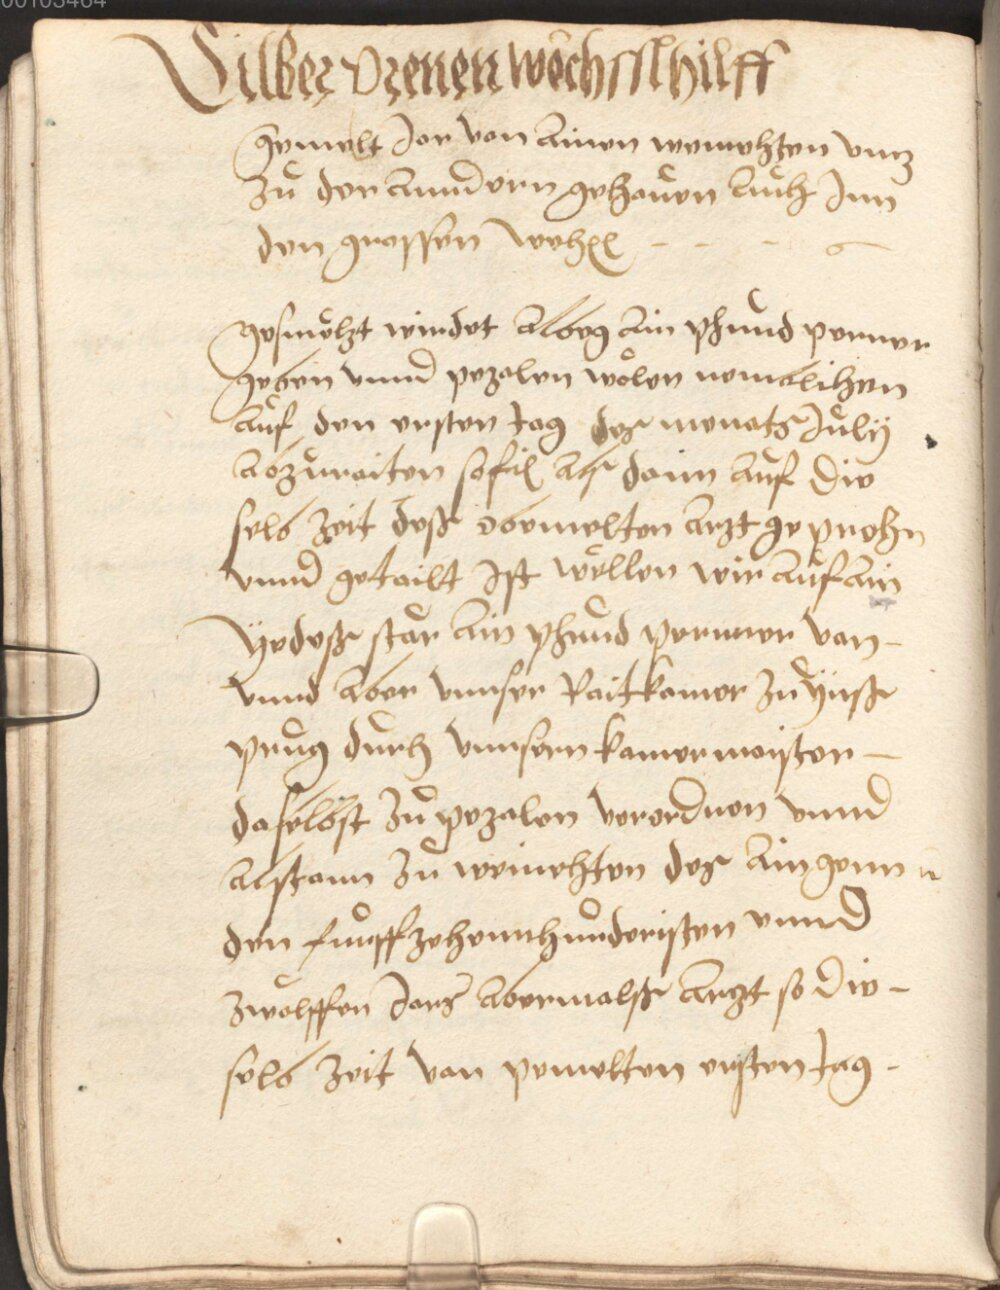 00103464
Silber Prenen wechssl hilff
gemelt Jar von ainen weinechten vntz
zu der anndern gehauen auch Inn
den grossen wechsl
gesmeltzt wirdet albeg ain phund perner
geben vnnd pezalen wölen nemalichen
auf den ersten tag des monets July
abzuraiten sofil als dann auf die
selb zeit deß obemelten Artzt geprochn
vnnd getailt Ist wellen wir auf ain
yedeß star ain phund perner von
vnnd aber vnnser Raitkamer zu ynß
prug durch vnnsern kamermaister
daselbst zu pezalen verordnen vnnd
alßdann zu weinechten des aingenn
den funffzehennhunderisten vnnd
zwölfften Jars abermalß Artzt so die
selb zeit von pemelten ersten tag